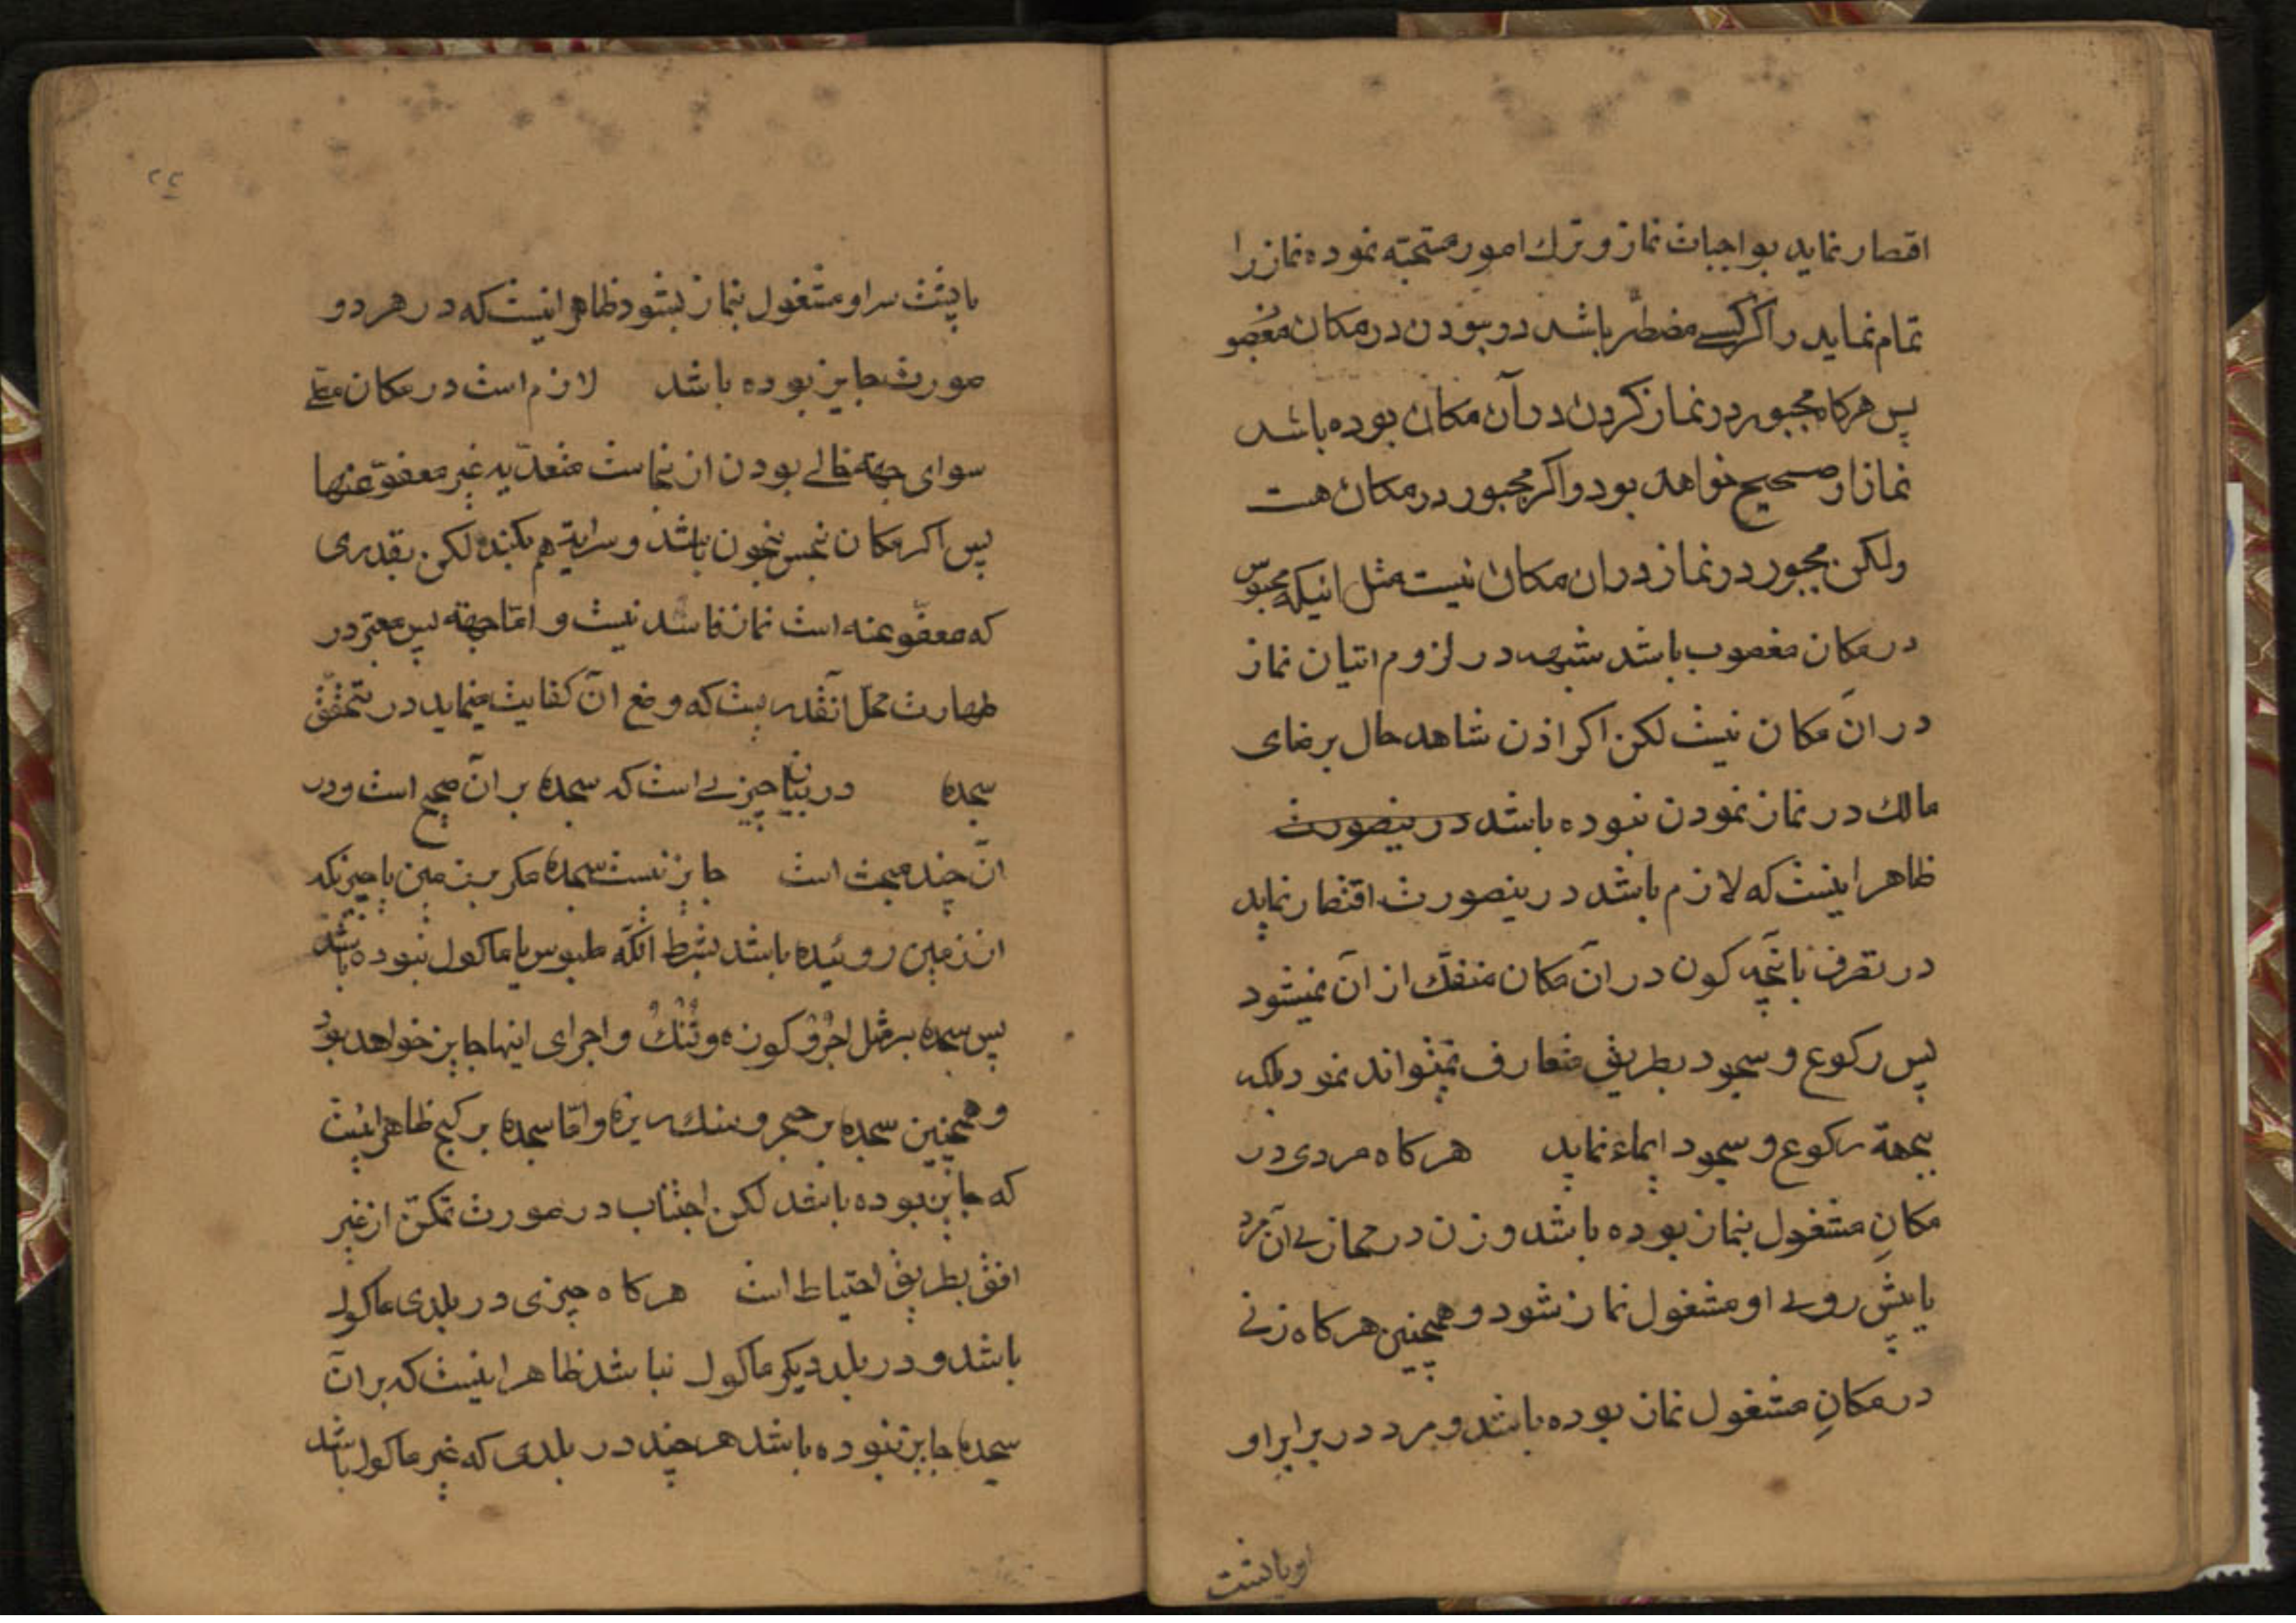 اقتصار نماید بواجبات نماز و ترك امور مستحبّه نموده نماز را
تمام نماید و اکر کسے مضطرّ باشد در بودن در مکان مغصو
پس هرکاه مجبور در نماز کردن در آن مکان بوده باشد
نماز او صحیح خواهد بود و اکر مجبور در مکان هست
ولکن مجبور در نماز در ان مکان نیست مثل اینکه محبوس
در مکان مغصوب باشد شبهه در لزوم اتیان نماز
در انَ مکان نیست لکن اکر اذن شاهد حال برضای
مالك در نماز نمودن نبوده باشد در ینصورت
ظاهر اینست که لازم باشد در ینصورت اقتصار نماید
در تصرف بانچه کون در آن مکان منفكّ از آن نمیشود
پس رکوع و سجود بطریق متعارف نمیتواند نمود بلکه
بجهة رکوع و سجود ایماء نماید هرکاه مردی در
مکانِ مشغول بنماز بوده باشد و زن در محاز ے آن مرد
یا پیش روے او مشغول نماز شود و همچنین هرکاه زنے
در مکانِ مشغول نماز بوده باشد و مرد در برابر او
او یا پشت
۲۲
یا پشت سر او مشغول بنماز بشود ظاهر اینست که در هر دو
صورت جایز بوده باشد لازم است در مکان مصلّے
سوای جبهه خالے بودن از نجاست متعدّیه غیر معفوّ عنها
پس اکر مکان نجس بخون باشد و سرایة هم بکند لکن بقدری
که معفوّ عنه است نماز فاسد نیست و امّا جبهه پس معتبر در
طهارت محلّ آنقدریست که وضع آن کفایت مینماید در تحقّق
سجده در بیان چیزے است که سجده بر آن صحیح است و در
آن چند مبحث است جایز نیست سجده مکر بر زمین یا چیزیکه
از زمین روئیده باشد بشرط آنکه ملبوس یا ماکول نبوده باشد
پس سجده بر مثل اجُر و کوزه و تُنُكْ و اجرای اینها جایز خواهد بود
و همچنین سجده بر حجر و سنك ریزه و امّا سجده بر کج ظاهر اینست
که جایز بوده باشد لکن اجتناب در صورت تمکّن از غیر
افق بطریق احتیاط است هرکاه چیزی در بلدی ماکولے
باشد و در بلد دیکر ماکول نباشد ظاهر اینست که بر آن
سجده جایز نبوده باشد هر چند در بلدی که غیر ماکول باشد